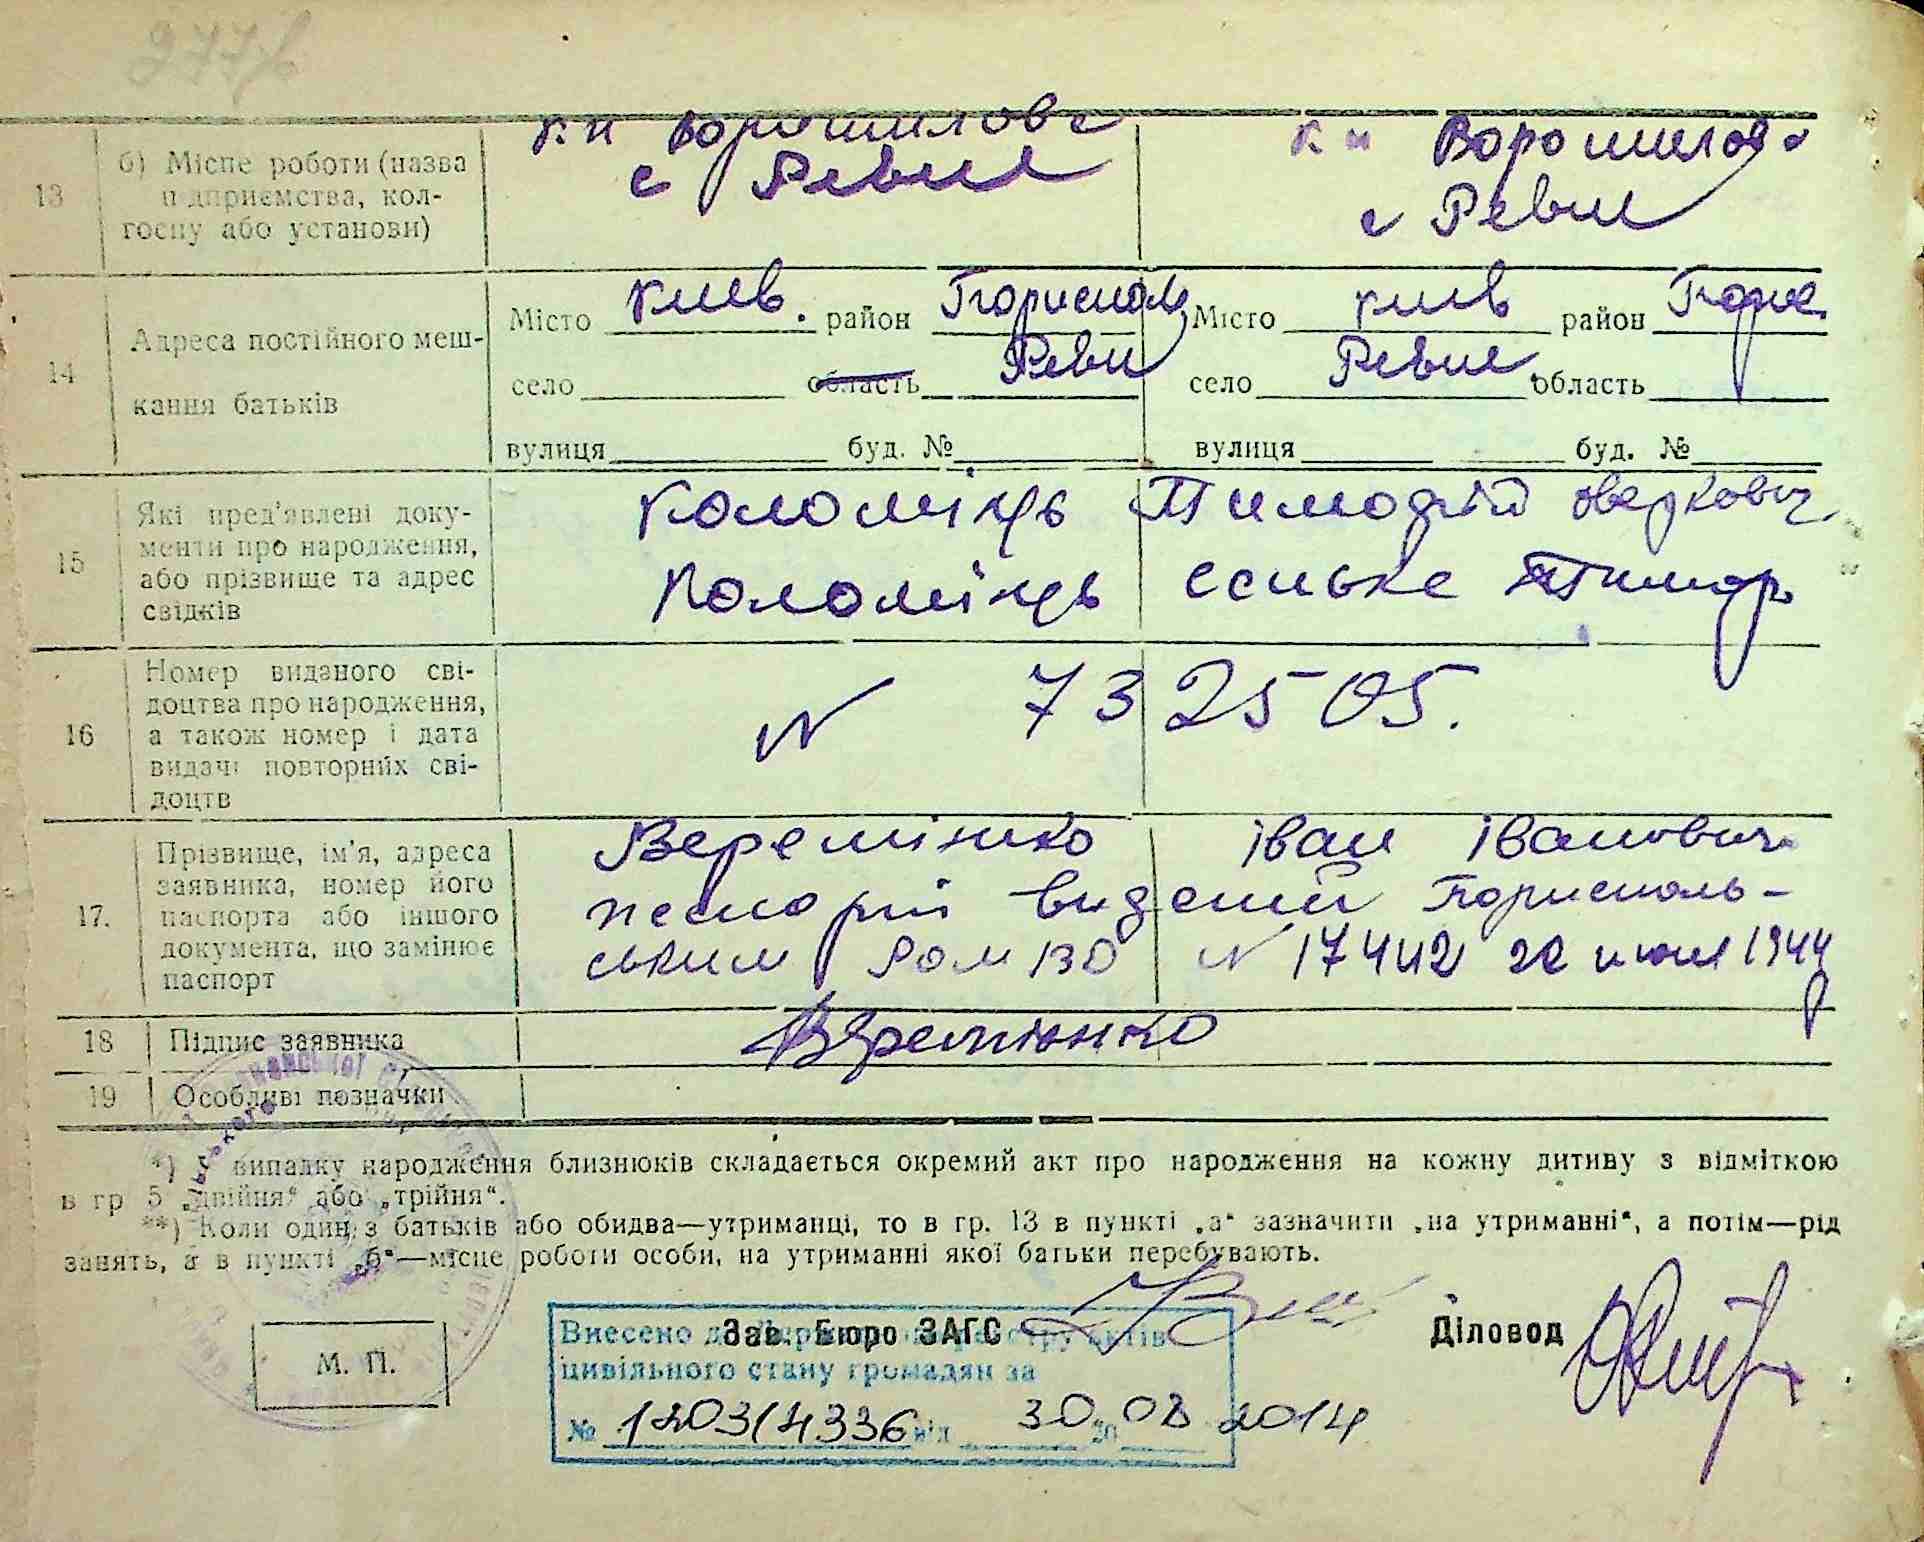 277
13
б) Місце роботи (назва
підприємства, кол-
госпу або установи)
к и Ворошилова
с Ревне
к и Ворошилова
с Ревне
14
Адреса постійного меш-
кання батьків
Місто Киев. район Бориспол
село область Ревн
вулиця буд. №
Місто Киев район Борис
село Ревне область
вулиця буд. №
15
Які пред'явлені доку-
менти про народження,
або прізвище та адрес
свідків
Коломієць Тимофій
Коломієць
16
Номер виданого сві-
доцтва про народження,
а також номер і дата
видачі повторних сві-
доцтв
N 732505.
17.
Прізвище, ім'я, адреса
заявника, номер його
паспорта або іншого
документа, що замінює
паспорт
Веремієнко Іван Іванович
паспорт виданий Бориспіль-
ським N 17442 июля 1944
18
Підпис заявника
Веремієнко
19
Особливі позначки
*) випадку народження близнюків складається окремий акт про народження на кожну дитиву з відміткою
в гр 5 „двійня“ або „трійня“.
**) Коли один з батьків або обидва—утриманці, то в гр. 13 в пункті „а“ зазначити „на утриманні“, а потім—рід
занять, а в пункті „б“—місце роботи особи, на утриманні якої батьки перебувають.
М. П.
Зав. Бюро ЗАГС
Діловод
Внесено до Державного реєстру актів
цивільного стану громадян за
№ 120314336 від 30 08 2014